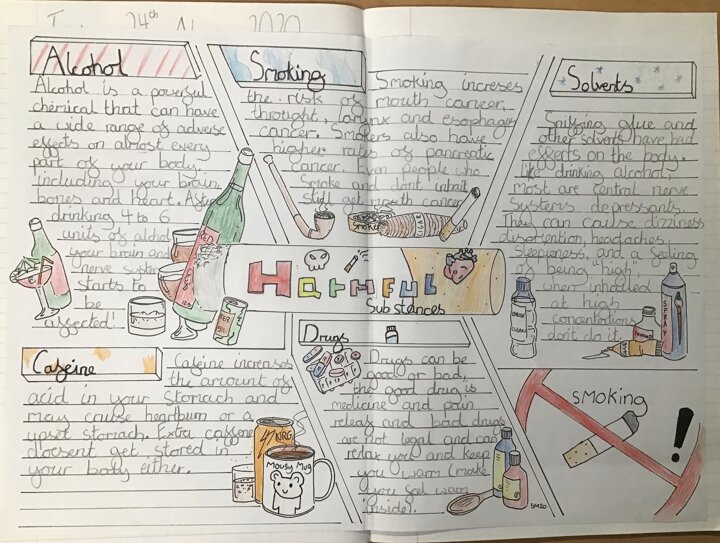 24th
2020
Alcohol
Alcohol is a powerful
chemical that can have
a wide range of adverse
effects on almost every
part of your body
including your brain
bones and heart. After
drinking 4 to 6
units of alchol
your brain and
nerve system
starts to
be
affected!
Smoking
Smoking increses
the risk of mouth cancer,
throught, larynx and esophages
cancer. Smokers also have
higher rates of pancreatic
cancer. Even people who
Smoke and dont inhale
still get mouth cancer
Smoke
Solvents
Sniffing glue and
other solvents have bad
effects on the body.
like drinking alcohol,
most are central nerve
systems depressants.
They can cause dizziness
distortion, headaches,
sleepeness, and a feeling
of being "high",
when inhalled
at high
concentrations
don't do it
CLEAN
SPRAY
Harmful
Substances
Caffeine
Caffeine increases
the amount of
acid in your stomach and
may cause heartburn or a
upset stomach. Extra caffeine
doesent get stored in
your body either.
NRG
Mousy Mug
Drugs
Drugs can be
good or bad,
the good drug is
medicine and pain
releaf and bad drugs
are not legal and can
relax you and keep
you warm (make
you feel warm
inside).
SMOKING
!